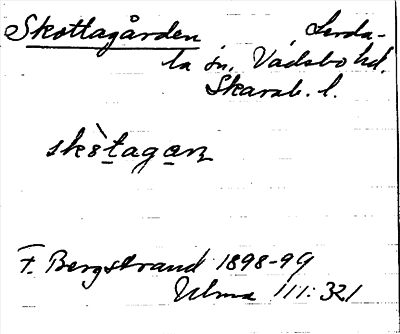 Skottagården, Lerda-
la sn, Vadsbo hd.
Skarab. l.
skò̱taga̱n
F. Bergstrand 1898-99
Ulma 111:321